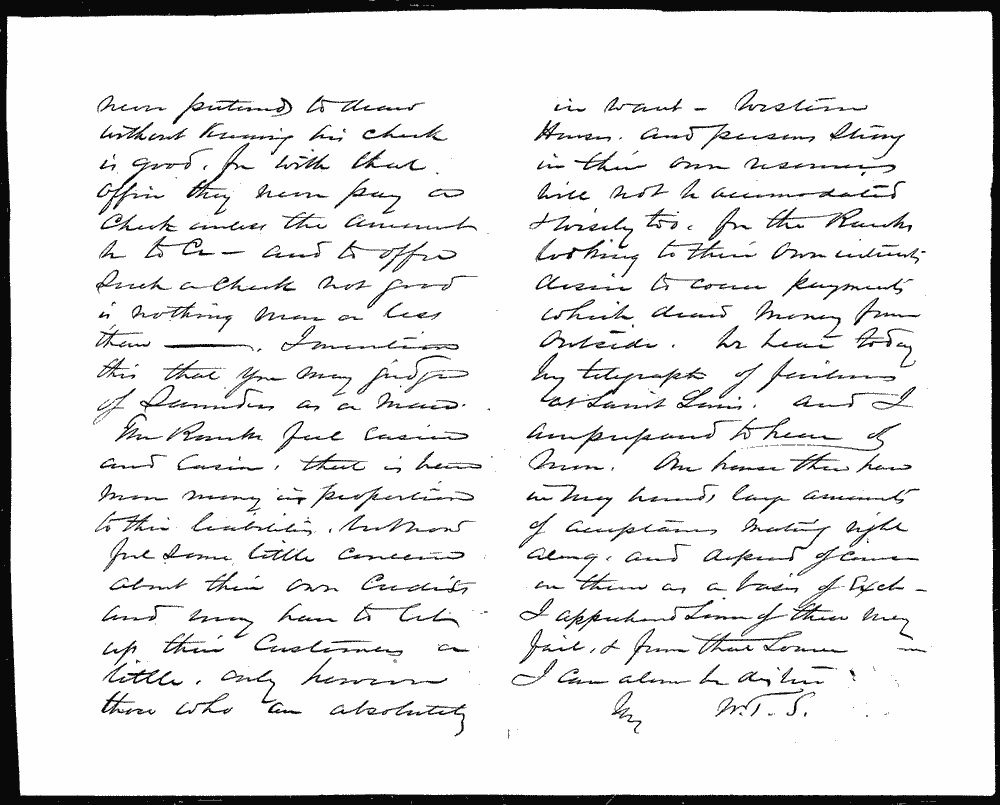 never pretend to draw
without knowing his check
is good, for with that
office they never pay a
Check unless the amount
be to Cr — and to offer
such a check not good
is nothing more or less
than ———. I mention
this that you may judge
of Saunders as a man.
The Banks feel easier
and easier, that is have
more money in proportion
to their liabilities, but now
feel some little concern
about their own Credits
and may have to let
up their Customers a
little, only however
those who are absolutely
in want — Western
Houses, and persons strong
in their own resources
will not be accommodated
& wisely too, for the Banks
looking to their own interests
desire to cover payments
which draw money from
outside. We hear today
by telegraph of failures
at Saint Louis, and I
am prepared to hear of
more. Our house there have
in my hands large amounts
of acceptances maturing right
along, and depend of course
on them as a basis of Exch —
I apprehend some of these may
fail, & from that source
I can alone be
W.T.S.